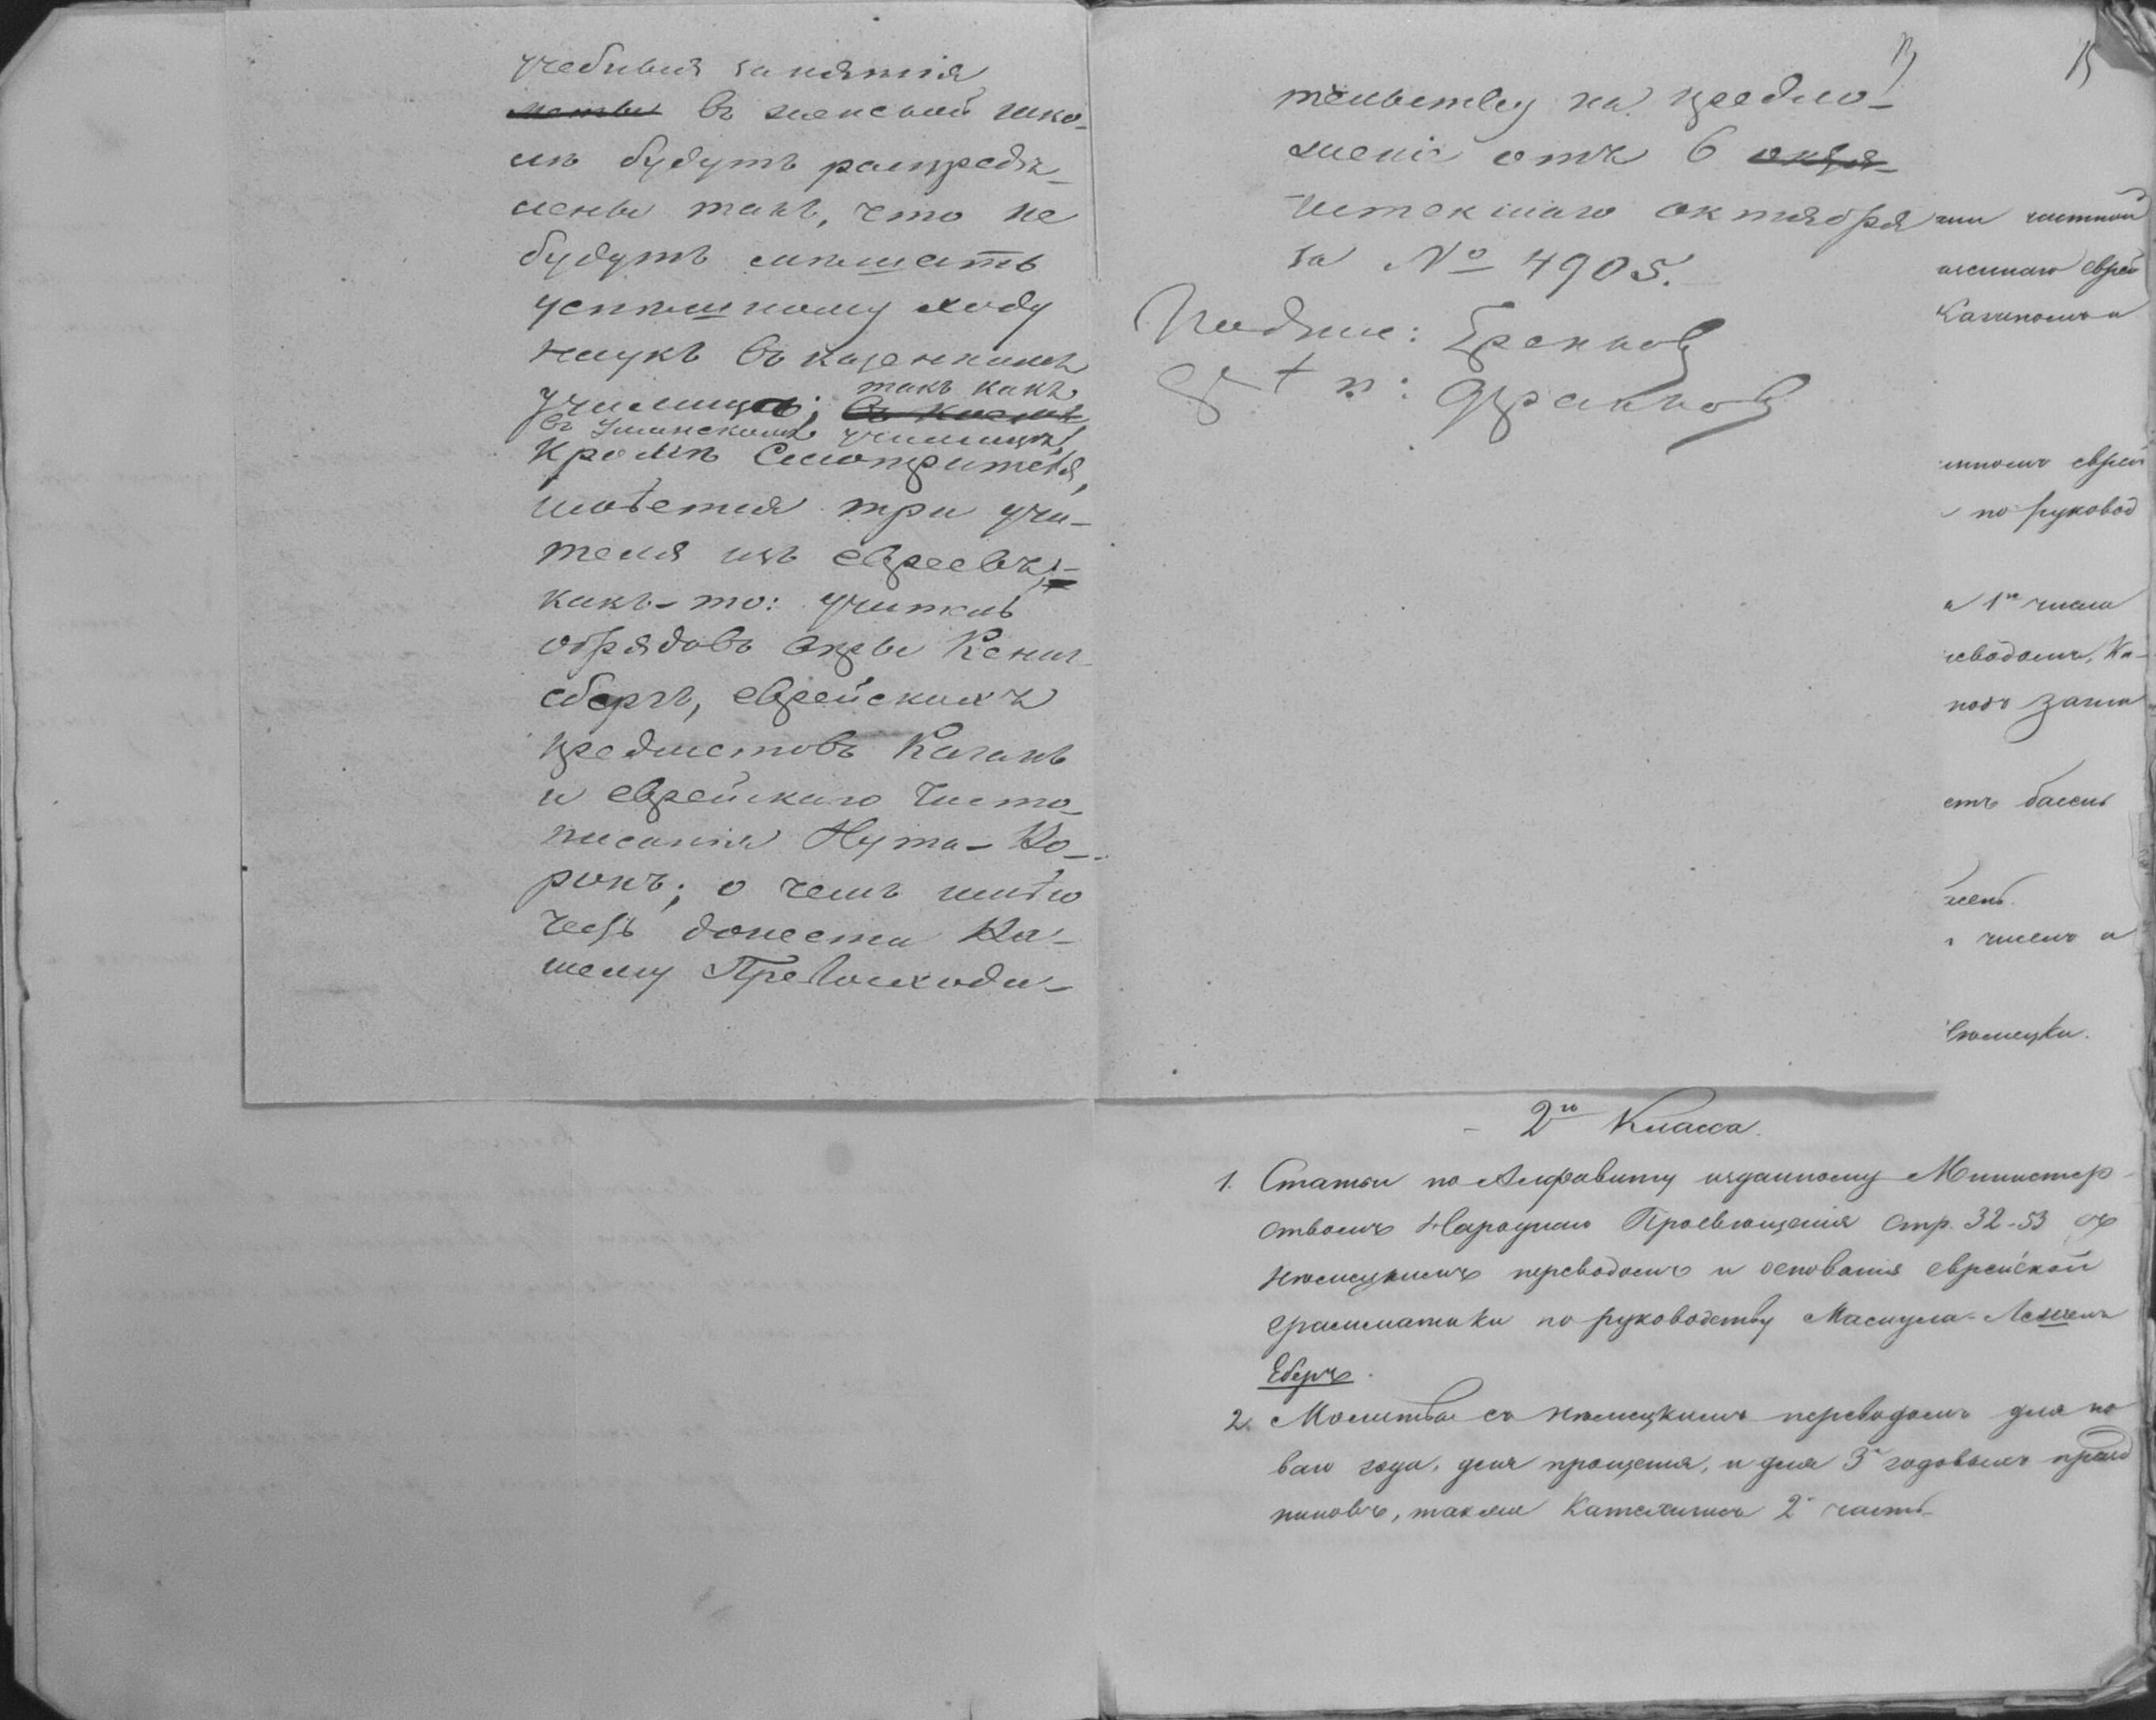 учебныя занятія
въ женской шко-
лѣ будутъ распредѣ-
лены такъ, что не
будутъ мѣшать
успѣшному ходу
наукъ въ казенномъ
училищѣ; такъ какъ
въ Уманскомъ училищѣ,
кромѣ Смотрителя,
имѣется три учи-
теля изъ евреевъ,
какъ-то: учитель
обрядовъ вѣры Кениг-
сбергъ, еврейскихъ
предметовъ Каганъ
и еврейскаго чисто-
писанія Нута-Ко-
ронъ; о чемъ имѣю
честь донести Ва-
шему Превосходи-
тельству на предло-
женіе отъ 6
истекшаго октября
за № 4905.
Подпис:
13
по руковод
2го Класса.
1. Статьи по Алфавиту изданному Министер-
ствомъ Народнаго Просвѣщенія Стр. 32-53 съ
нѣмецкимъ переводомъ и основанія еврейской
грамматики по руководству Маслула-Лешенъ
Еберъ.
2. Молитвы съ нѣмецкимъ переводомъ для но
ваго года, для прощенія, и для 3х годовыхъ празд
никовъ, также Катехизисъ 2. часть